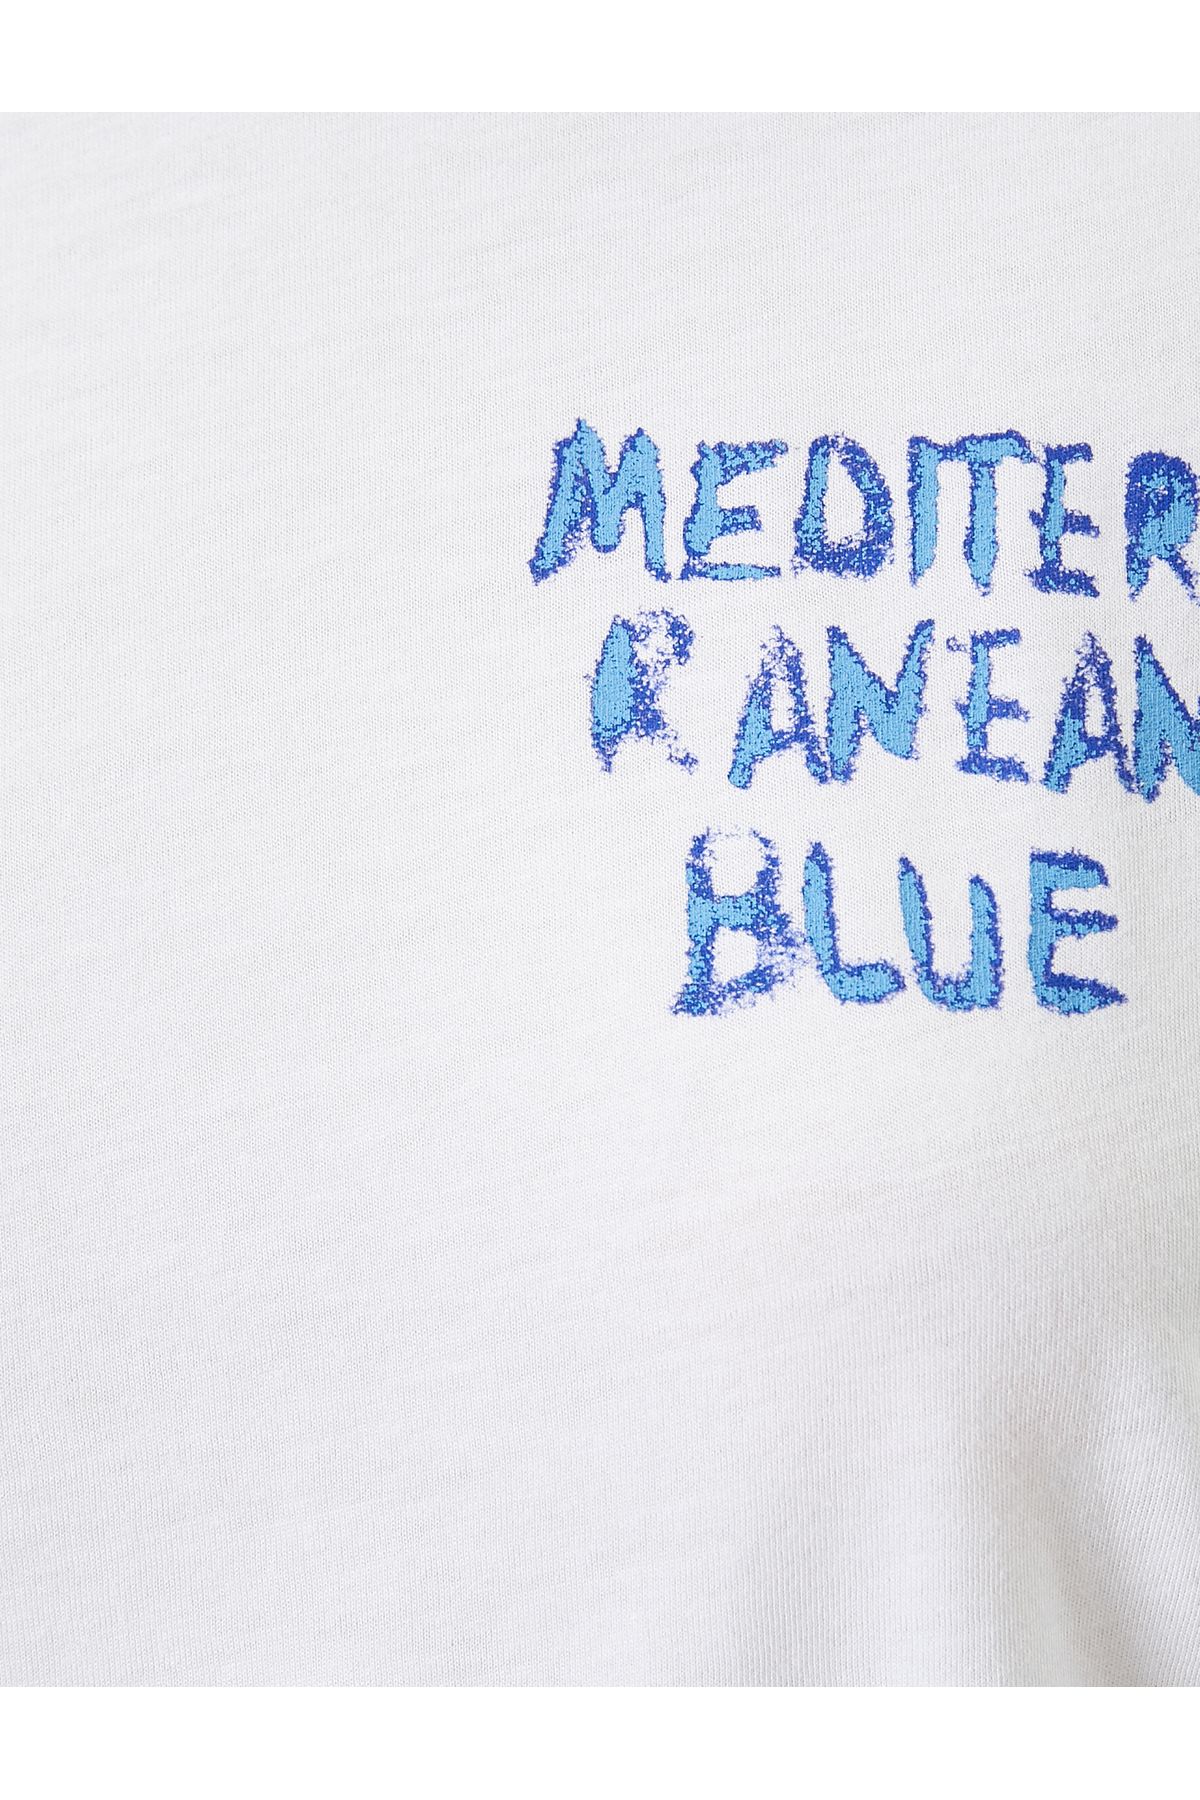 MEDITER
RANEAN
BLUE